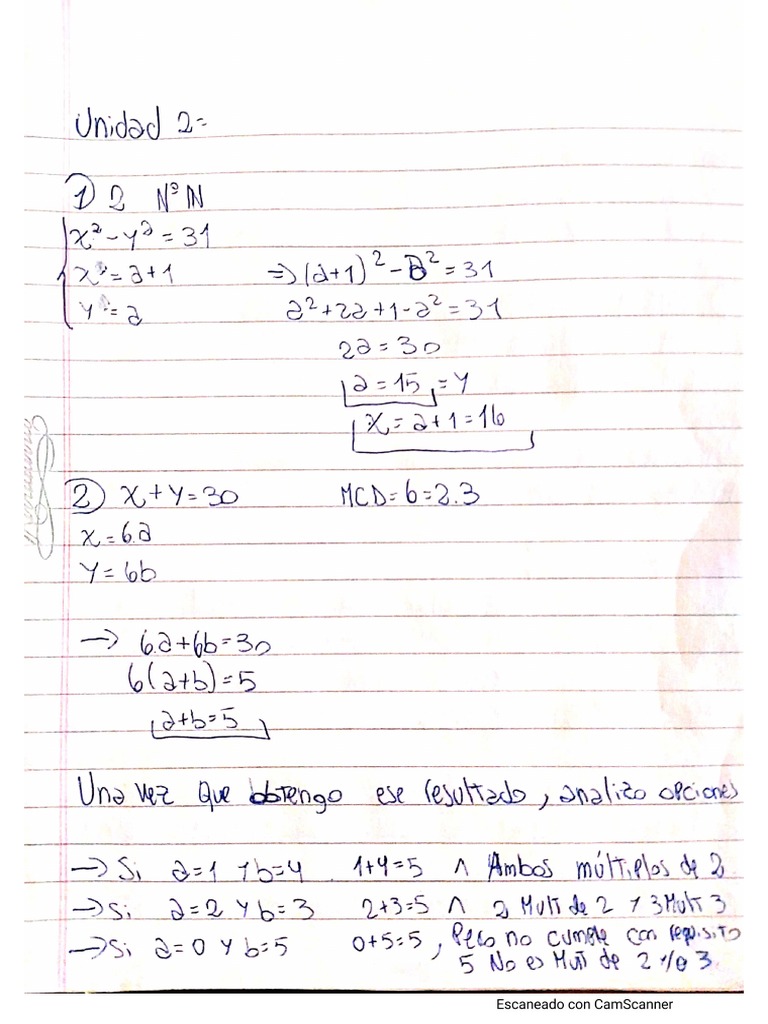 Unidad 2=
1) 2 Nº IN
x² - y² = 31
x = a+1 => (a+1)² - a² = 31
y = a a² + 2a + 1 - a² = 31
2a = 30
a = 15 = y
x = a+1 = 16
2) x + y = 30 MCD = 6 = 2.3
x = 6.a
y = 6b
→ 6.a + 6b = 30
6(a+b) = 5
a+b = 5
Una vez que obtengo ese resultado, analizo opciones
→ Si a=1 y b=4 1+4=5 ∧ Ambos múltiplos de 2
→ Si a=2 y b=3 2+3=5 ∧ 2 Mult de 2 y 3 Mult 3
→ Si a=0 y b=5 0+5=5, Pero no cumple con requisito
5 No es Mult de 2 y/o 3.
Escaneado con CamScanner